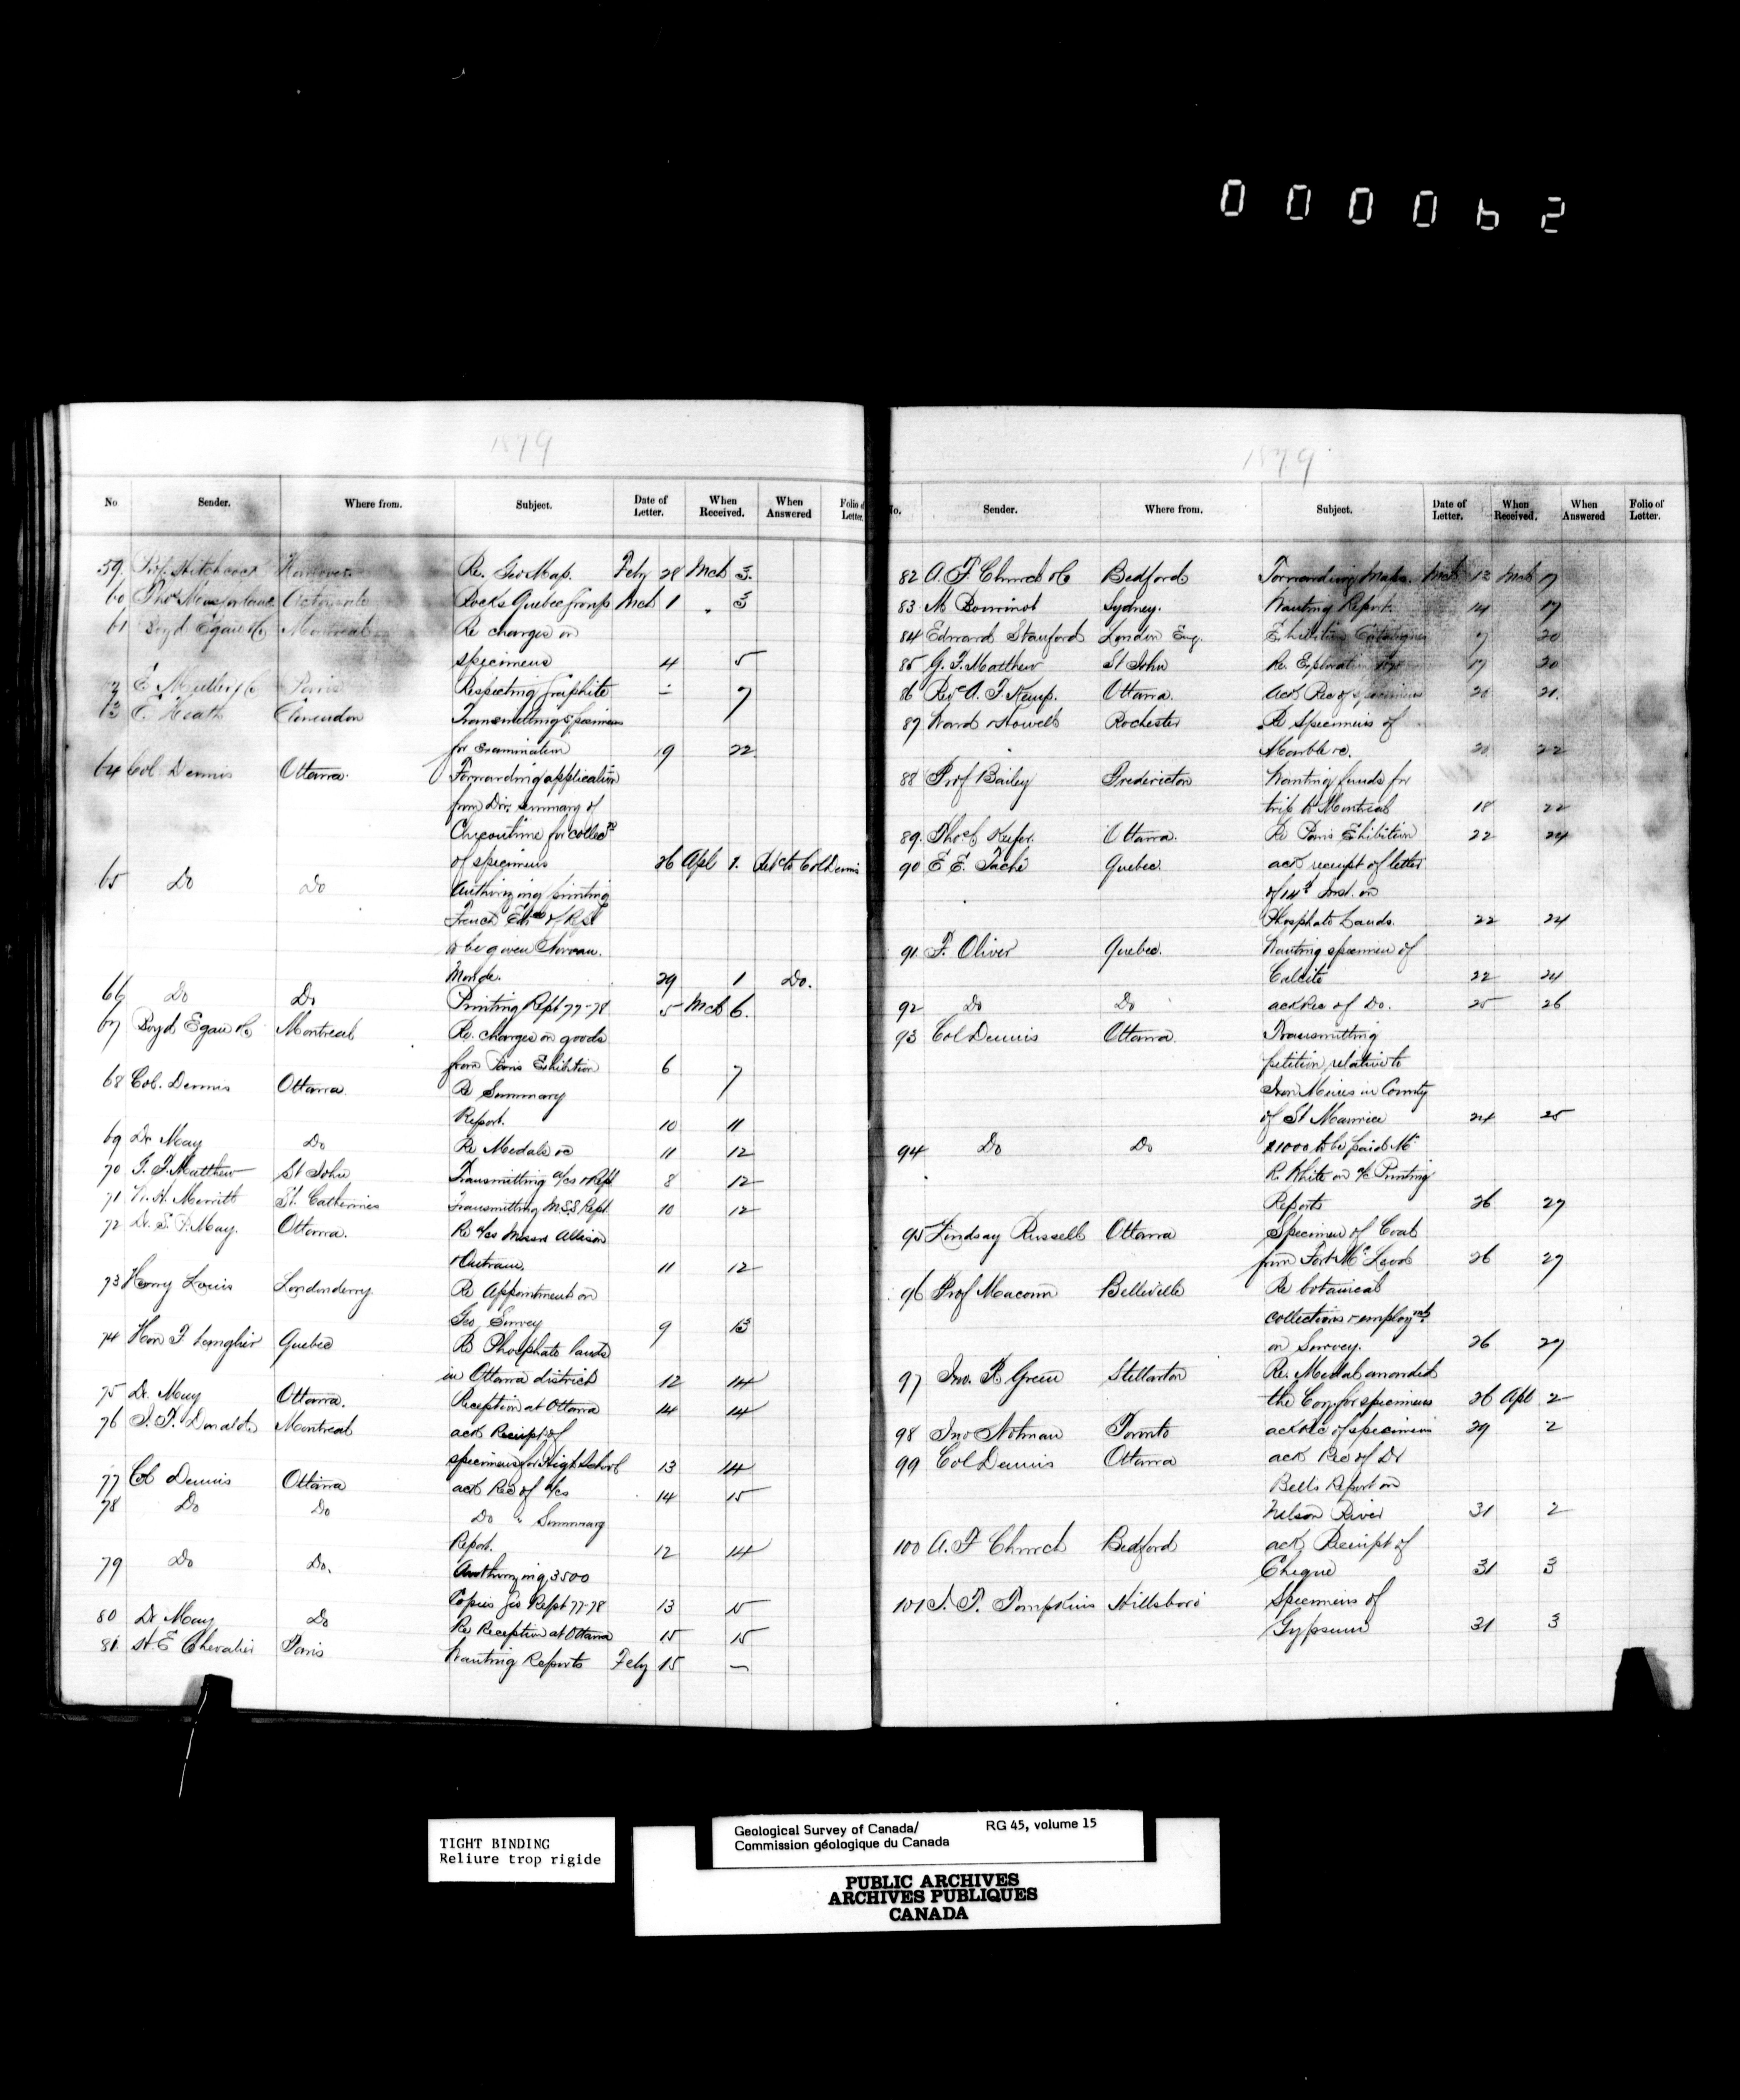 000062
1879
No Sender. Where from. Subject. Date of Letter. When Received. When Answered Folio of Letter.
59. Prof. Hitchcock Hanover. Re. Geo Map. Feby 28 Mch 3.
60 Thos Macfarlane Actonvale Rocks Quebec Group Mch 1 " 3
61 Boyd Egan &Co Montreal Re charges on
specimens 4 5
62 E Paris Respecting Graphite — 7
63 E. Heath Clarendon Transmitting specimens
for examination 19 22
64 Col. Dennis Ottawa. Forwarding application
from
Chicoutimi for collectn
of specimens 26 Apl 1. Retd to Col Dennis
65 Do Do Authorizing printing
French Edn of Rept
to be given Nouveau
Monde. 29 1 Do.
66 Do Do Printing Rept 77-78 5 Mch 6.
67 Boyd Egan &Co Montreal Re. charges on goods
from Paris Exhibition 6 7
68 Col. Dennis Ottawa Re Summary
Report. 10 11
69 Dr May Do Re Medals &c 11 12
70 G. F. Matthew St John Transmitting a/cs & Rept 8 12
71 W. H. Merritt St. Catherines Transmitting M.S.S Rept 10 12
72 Dr. S. P. May. Ottawa. Re a/cs Messrs Allison
& Outram. 11 12
73 Harry Louis Londonderry Re Appointment on
Geo Survey 9 13
74 Hon F. Langlier Quebec Re Phosphate lands
in Ottawa district 12 14
75 Dr. May Ottawa. Reception at Ottawa 14 14
76 J. T. Donald Montreal ack Receipt of
specimens for High School 13 14
77 Col Dennis Ottawa ack Rec of a/cs 14 15
78 Do Do Do " Summary
Report. 12 14
79 Do Do. Authorizing 3500
Copies Geo Rept 77-78 13 15
80 Dr May Do Re Reception at Ottawa 15 15
81. H. E Chevalier Paris Wanting Reports Feby 15 —
1879
No. Sender. Where from. Subject. Date of Letter. When Received. When Answered Folio of Letter.
82 A. F. Church &Co Bedford Forwarding Maps. Mch 12 Mch 17
83 M Bourinot Sydney. Wanting Report. 14 17
84 Edward Stanford London Eng. Exhibition Catalogues 7 20
85 G. F. Matthew St John Re. Exploration 17 20
86 Revd A. F Kemp. Ottawa. Ack Rec of specimens 20 21.
87 Ward & Howell Rochester Re Specimens of
Marble &c. 20 22
88 Prof Bailey Fredericton Wanting funds for
trip to Montreal 18 22
89. Thos C Keefer. Ottawa. Re Paris Exhibition 22 24
90 E E. Taché Quebec. ack receipt of letter
of 14th Inst. on
Phosphate Lands. 22 24
91 F. Oliver Quebec. Wanting specimen of
Calcite 22 24
92 Do Do ack Rec of Do. 25 26
93 Col Dennis Ottawa. Transmitting
petition, relative to
Iron Mines in County
of St Maurice 24 25
94 Do Do $1000 to be paid Mr
R. White on a/c Printing
Reports 26 27
95 Lindsay Russell Ottawa Specimen of Coal
from Fort McLeod 26 27
96 Prof Macoun Belleville Re botanical
collections & employmt
on Survey. 26 27
97 Jno. R Green Stellarton Re. Medal awarded
the Coy. for specimens 26 Apl 2
98 Jno Notman Toronto ack Rec of specimens 29 2
99 Col Dennis Ottawa ack Rec of Dr
Bell's Report on
Nelson River 31 2
100 A. F Church Bedford ack Receipt of
Cheque 31 3
101 J. T. Tompkins Hillsboro Specimens of
Gypsum 31 3
TIGHT BINDING
Reliure trop rigide
Geological Survey of Canada/ RG 45, volume 15
Commission géologique du Canada
PUBLIC ARCHIVES
ARCHIVES PUBLIQUES
CANADA